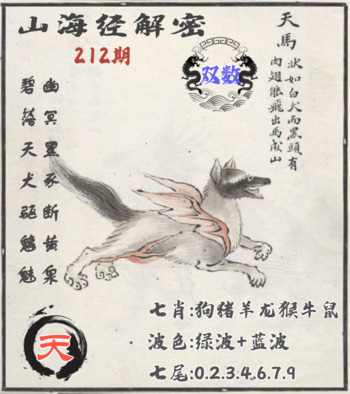 山海经解密
212期
双数
天馬
状如白犬而黑頭有
肉翅能飛出馬成山
碧落天犬驅魑魅
幽冥黑豕断黄泉
天
七肖:狗猪羊龙猴牛鼠
波色:绿波+蓝波
七尾:0.2.3.4.6.7.9